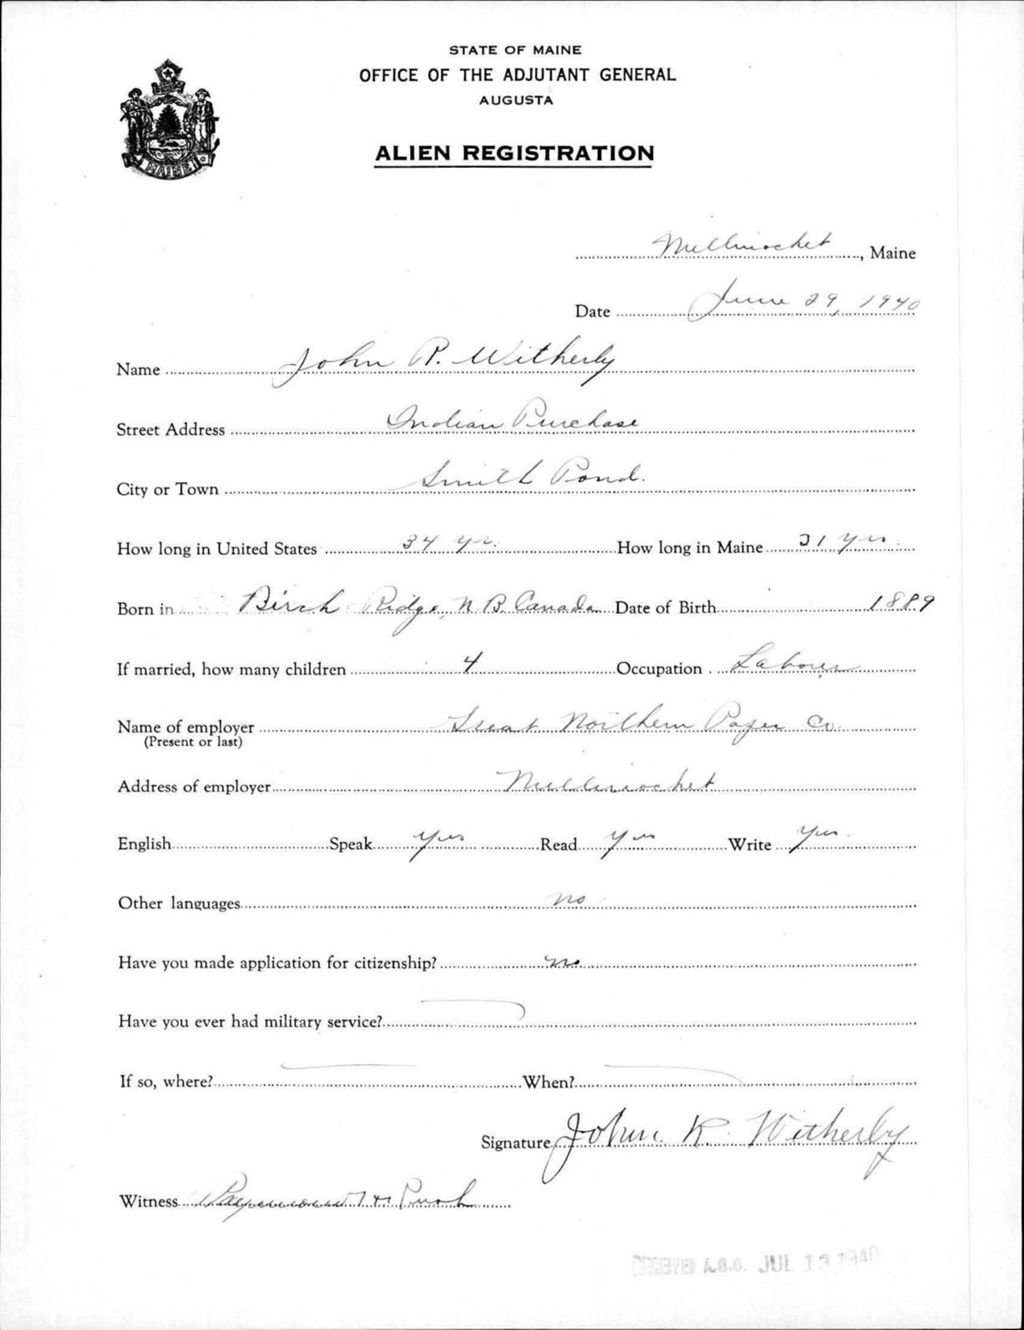 STATE OF MAINE
OFFICE OF THE ADJUTANT GENERAL
AUGUSTA
ALIEN REGISTRATION
MAINE
Millinocket, Maine
Date June 29, 1940
Name John R. Witherly
Street Address Indian Purchase
City or Town Smith Pond.
How long in United States 34 yr. How long in Maine 31 yrs
Born in Birch Ridge, N.B. Canada Date of Birth 1889
If married, how many children 4 Occupation Laborer
Name of employer Great Northern Paper Co.
(Present or last)
Address of employer Millinocket
English Speak Yes Read Yes Write Yes
Other languages no
Have you made application for citizenship? no
Have you ever had military service?
If so, where? When?
Signature John R. Witherly
Witness Raymond H.
RECEIVED A.G.O. JUL 1940